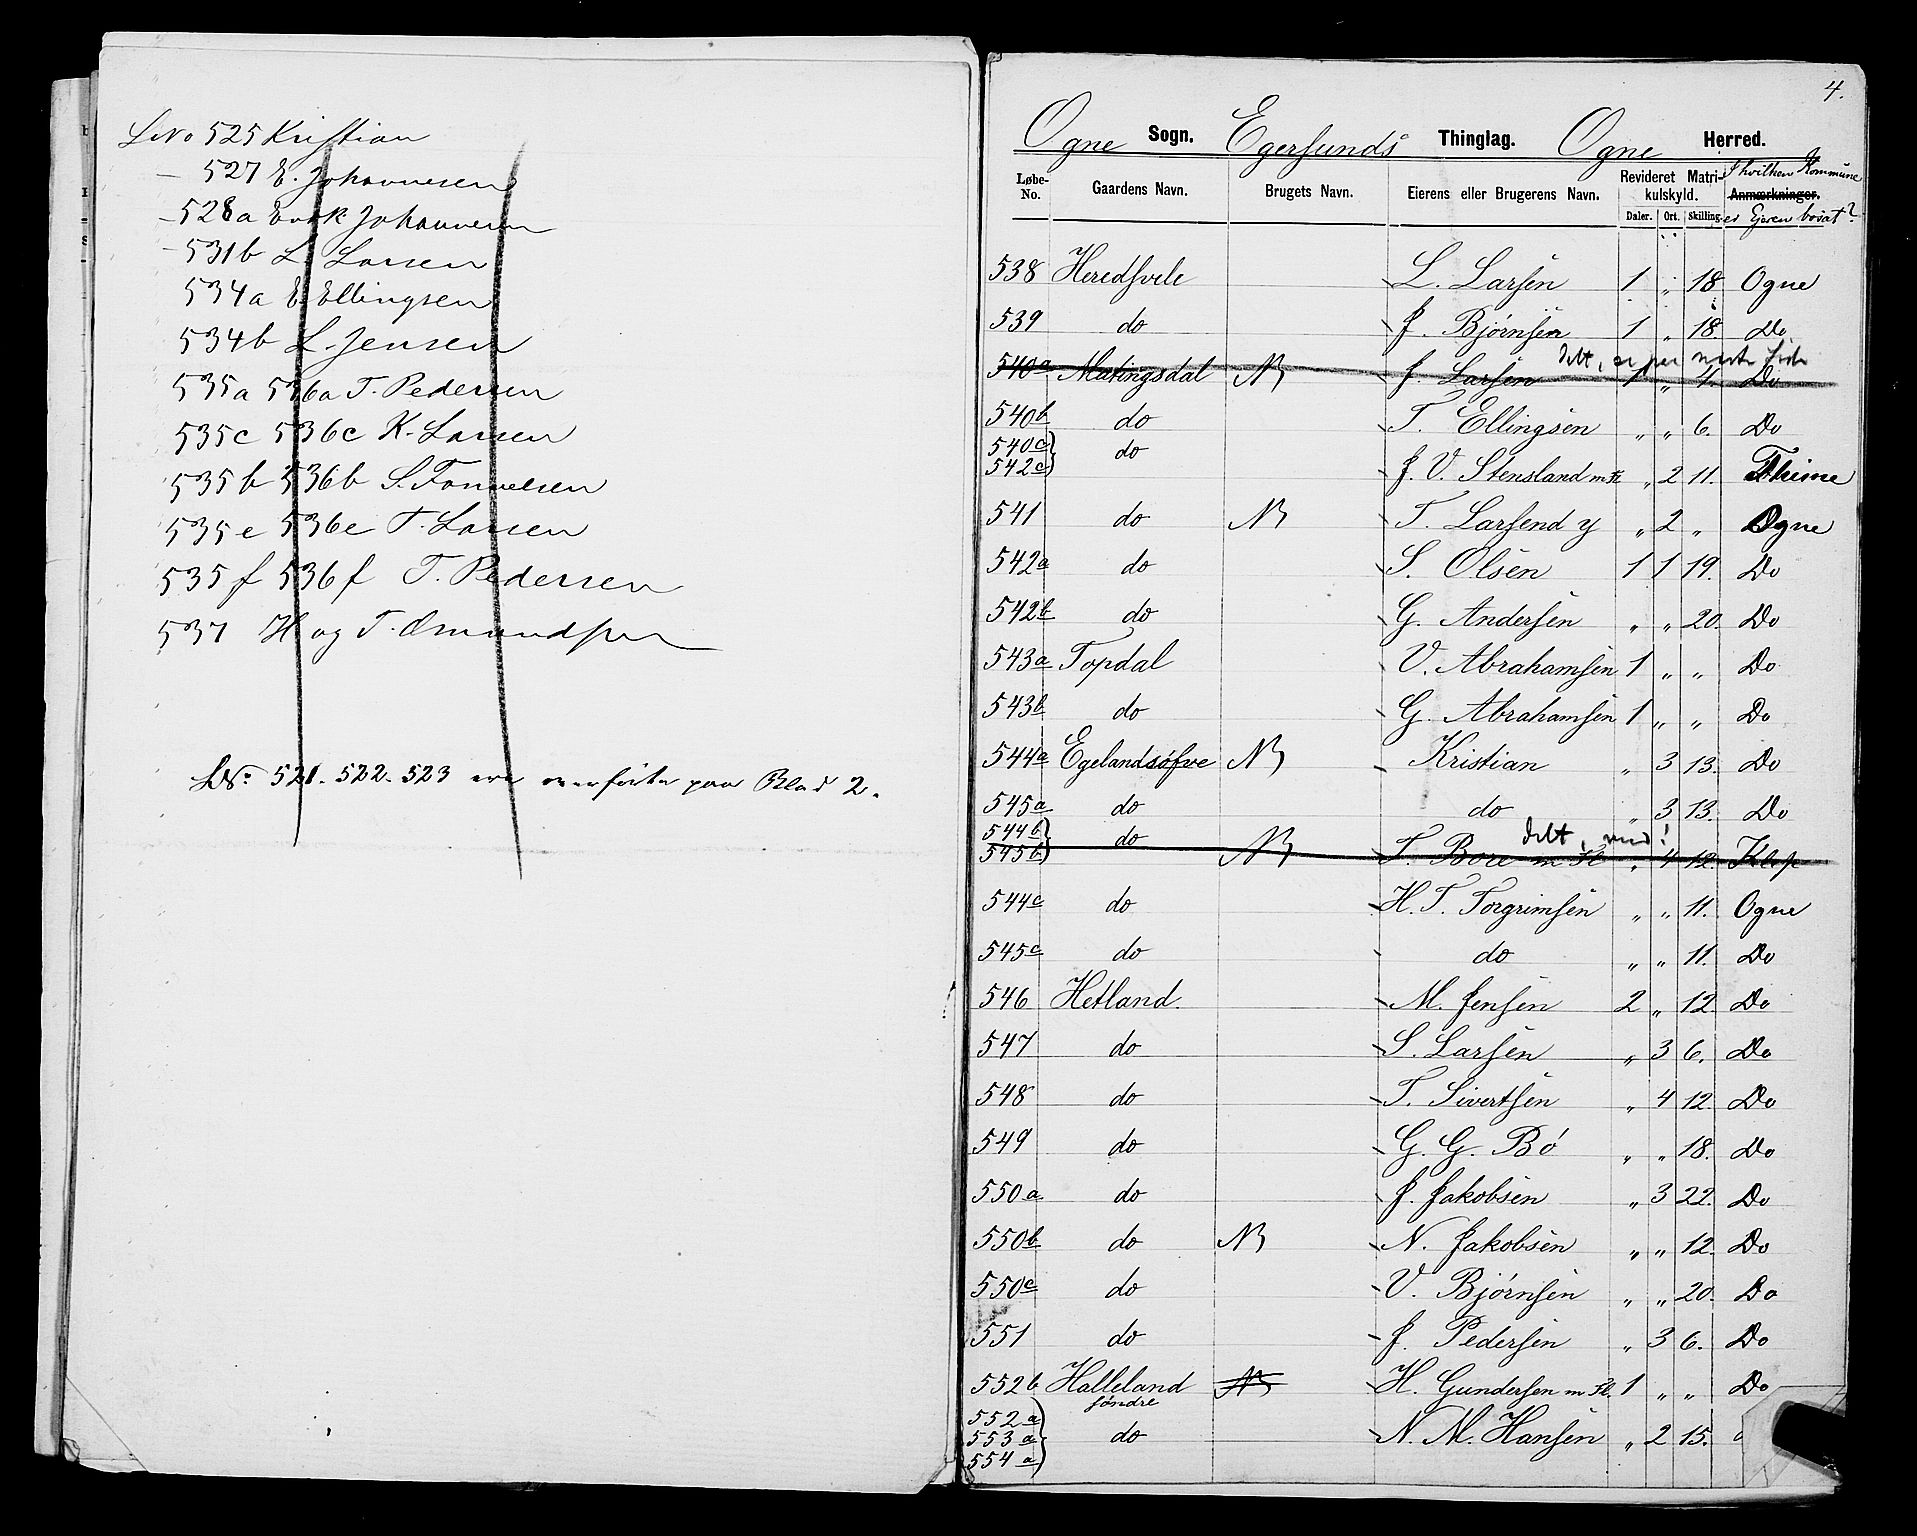 LNo 525 Kristian
— 527 E. Johannesen
— 528a Enok Johannesen
— 531b L. Larsen
534a E. Ellingsen
534b L. Jensen
535a 536a T. Pedersen
535c 536c K. Larsen
535b 536b S.
535e 536e T. Larsen
535f 536f T. Pedersen
537 H og T. Omundsen
LNr. 521. 522. 523 ere overførte paa Blad 2.
4.
Ogne Sogn. Egersunds Thinglag. Ogne Herred.
Løbe-No. Gaardens Navn. Brugets Navn. Eierens eller Brugerens Navn. Revideret Matrikulskyld. Daler. Ort. Skilling. Anmærkninger. I hvilken Kommune er Ejeren bosat?
538 Heredsvele L. Larsen 1 „ 18. Ogne
539 do J. Bjørnsen 1 „ 18. Do
delt, se neste side
540a Matingsdal NB J. Larsen 1 „ 4. Do
540b do T. Ellingsen „ „ 6. Do
540c 542c } do J. V. Stensland m Fl „ 2 11. Thime
541 do NB T. Larsen d y „ 2 „ Ogne
542a do S. Olsen 1 1 19. Do
542b do G. Andersen „ „ 20. Do
543a Topdal V. Abrahamsen 1 „ „ Do
543b do G. Abrahamsen 1 „ „ Do
544a Egelandsøfve NB Kristian „ 3 13. Do
545a do do „ 3 13. Do
delt, !
544b 545b } do NB T. Bore m Fl „ 4 12. Klep
544c do H. T. Torgrimsen „ „ 11. Ogne
545c do do „ „ 11. Do
546 Hetland. M. Jensen 2 „ 12. Do
547 do S. Larsen „ 3 6. Do
548 do T. Sivertsen „ 4 12. Do
549 do G. G. Bø „ „ 18. Do
550a do J. Jakobsen „ 3 22. Do
550b do NB N. Jakobsen „ „ 12. Do
550c do V. Bjørnsen „ „ 20. Do
551 do J. Pedersen „ 3 6. Do
552b Halleland søndre NB H. Gundersen m Fl. 1 „ „ Do
552a 553a 554a } do N. M. Hansen „ 2 15.